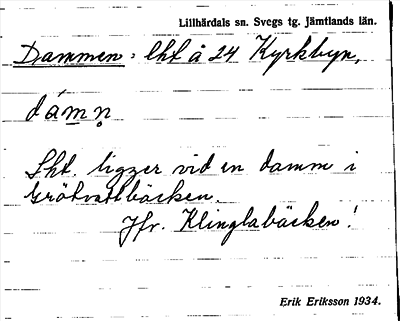 Lillhärdals sn. Svegs tg. jämtlands län.
Dammen: lht å 24 Kyrkbyn,
dámn̥
Lht. ligger vid en damm i
Grötvattbäcken.
Jfr. Klinglabäcken!
Erik Eriksson 1934.